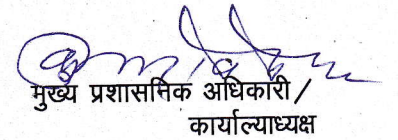 मुख्य प्रशासनिक अधिकारी /
कार्याल्याध्यक्ष